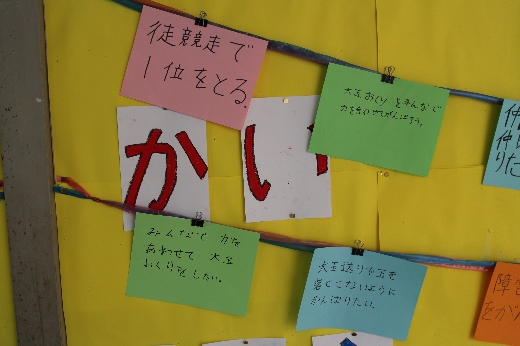 徒競走で
1位をとる。
大玉おくりをみんなで
力を合わせてがんばろう。
かい
みんなで力を
あわせて大玉
おくりをしたい。
大玉送りや玉を
落とさないように
がんばりたい。
仲
仲良
りた
障害
をが